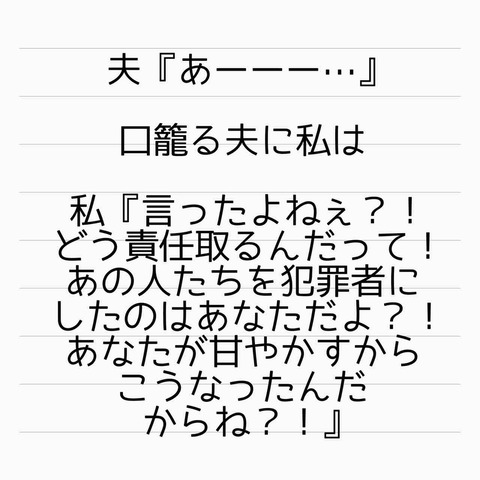 夫『あーーー…』
口籠る夫に私は
私『言ったよねぇ？！
どう責任取るんだって！
あの人たちを犯罪者に
したのはあなただよ？！
あなたが甘やかすから
こうなったんだ
からね？！』